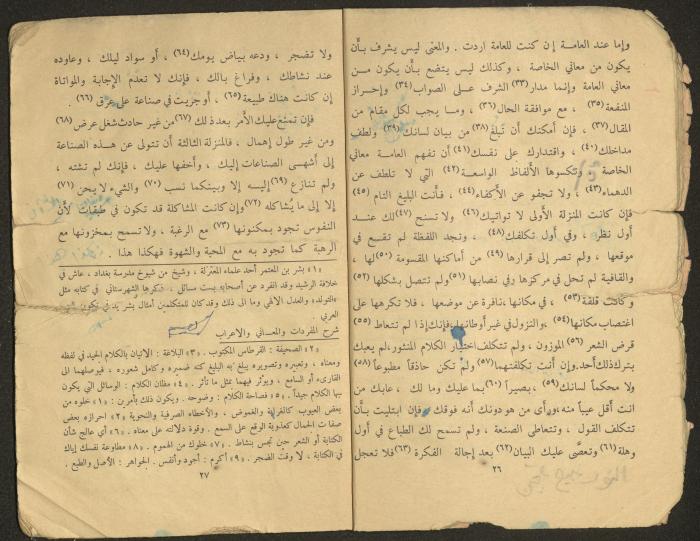 وإما عند العامة إن كنت للعامة اردت . والمعنى ليس يشرف بأن
يكون من معاني الخاصة ، وكذلك ليس يتضع بأن يكون من
معاني العامة وإنما مدار (٣٣) الشرف على الصواب (٣٤) وإحراز
المنفعة (٣٥) ، مع موافقة الحال (٣٦) ، وما يجب لكل مقام من
المقال (٣٧) ، فإن أمكنك أن تبلغ (٣٨) من بيان لسانك (٣٩) ولطف
مداخلك (٤٠) ، واقتدارك على نفسك (٤١) أن تفهم العامة معاني
الخاصة ، وتكسوها الألفاظ الواسعة (٤٢) التي لا تلطف عن
الدهماء (٤٣) ، ولا تجفو عن الأكفاء (٤٤) ، فأنت البليغ التام (٤٥)
فإن كانت المنزلة الأولى لا تواتيك (٤٦) ولا تسنح (٤٧) لك عند
أول نظر ، وفي أول تكلفك (٤٨) ، وتجد اللفظة لم تقع في
موقعها ، ولم تصر إلى قرارها (٤٩) من أماكنها المقسومة (٥٠) لها ،
والقافية لم تحل في مركزها وفي نصابها (٥١) ولم تتصل بشكلها (٥٢)
وكانت قلقة (٥٣) ، في مكانها ، نافرة عن موضعها ، فلا تكرهها على
اغتصاب مكانها (٥٤) ، والنزول في غير أوطانها ، فإنك إذا لم تتعاط (٥٥)
قرض الشعر (٥٦) الموزون ، ولم تتكلف اختيار الكلام المنثور ، لم يعبك
بترك ذلك أحد . وإن أنت تكلفتهما (٥٧) ولم تكن حاذقاً مطبوعاً (٥٨)
ولا محكماً لسانك (٥٩) ، بصيراً (٦٠) بما عليك وما لك ، عابك من
انت أقل عيباً منه ، ورأى من هو دونك أنه فوقك . فإن ابتليت بأن
تتكلف القول ، وتتعاطى الصنعة ، ولم تسمح لك الطباع في أول
وهلة (٦١) وتعصّى عليك البيان (٦٢) بعد إجالة الفكرة (٦٣) فلا تعجل
٢٦
ولا تضجر ، ودعه بياض يومك (٦٤) ، أو سواد ليلك ، وعاوده
عند نشاطك ، وفراغ بالك ، فإنك لا تعدم الإجابة والمواتاة
إن كانت هناك طبيعة (٦٥) ، أو جريت في صناعة على عرق (٦٦) .
فإن تمنع عليك الأمر بعد ذلك (٦٧) من غير حادث شغل عرض (٦٨)
ومن غير طول إهمال . فالمنزلة الثالثة أن تتحول عن هذه الصناعة
إلى أشهى الصناعات إليك ، وأخفها عليك ، فإنك لم تشته ،
ولم تنازع (٦٩) إليه إلا وبينكما نسب (٧٠) والشيء لا يحن (٧١)
إلا إلى ما يشاكله (٧٢) وإن كانت المشاكلة قد تكون في طبقات لأن
النفوس تجود بمكنونها (٧٣) مع الرغبة ، ولا تسمح بمخزونها مع
الرهبة كما تجود به مع المحبة والشهوة فهكذا هذا .
«١» بشر بن المعتمر أحد علماء المعتزلة ، وشيخ من شيوخ مدرسة بغداد ، عاش في
خلافة الرشيد وقد انفرد عن أصحابه بست مسائل ، ذكرها الشهرستاني في كتابه مثل
«التولد» والعدل الالهي وما الى ذلك وقد كان للمتكلمين أمثال بشر يد في تكوين
العربي .
شرح المفردات والمعاني والاعراب
«٢» الصحيفة : القرطاس المكتوب . «٣» البلاغة : الاتيان بالكلام الجيد في لفظه
ومعناه ، وتعبيره وتصويره يبلغ به البليغ كنه ضميره وكامل شعوره ، فيوصلهما الى
القارىء أو السامع ، ويؤثر فيهما بمثل ما تأثر . «٤» مظان الكلام : الوسائل التي يكون
بها الكلام جيداً . «٥» فصاحة الكلام : وضوحه . ويكون ذلك بأمرين : «١» خلوه من
بعض العيوب كالغرابة والغموض ، والأخطاء الصرفية والنحوية «٢» احرازه بعض
صفات الجمال كعذوبة الوقع على السمع . وقوة دلالته على معناه . «٦» أي عالج شأن
الكتابة أو الشعر حين تحس بنشاط . «٧» خلوك من الهموم . «٨» مطاوعة نفسك إياك
في الكتابة ، لا وقت الضجر . «٩» أكرم : أجود وأنفس . الجواهر : الأصل والطبع .
٢٧